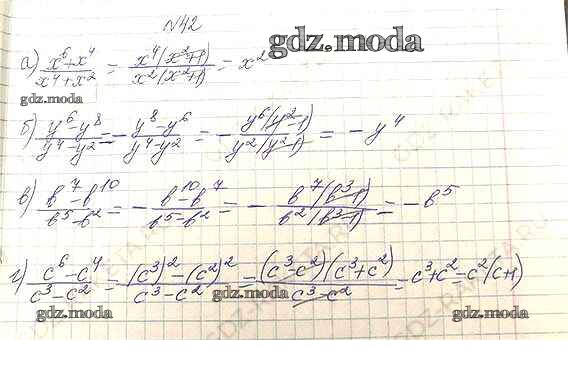 N42
gdz.moda
а) (x⁶+x⁴)/(x⁴+x²) = x⁴(x²+1)/x²(x²+1) = x²
gdz.moda
б) (y⁶-y⁸)/(y⁴-y²) = - (y⁸-y⁶)/(y⁴-y²) = - y⁶(y²-1)/y²(y²-1) = - y⁴
в) (b⁷-b¹⁰)/(b⁵-b²) = - (b¹⁰-b⁷)/(b⁵-b²) = - b⁷(b³-1)/b²(b³-1) = - b⁵
г) (c⁶-c⁴)/(c³-c²) = ((c³)²-(c²)²)/(c³-c²) = (c³-c²)(c³+c²)/(c³-c²) = c³+c² = c²(c+1)
gdz.moda gdz.moda gdz.moda